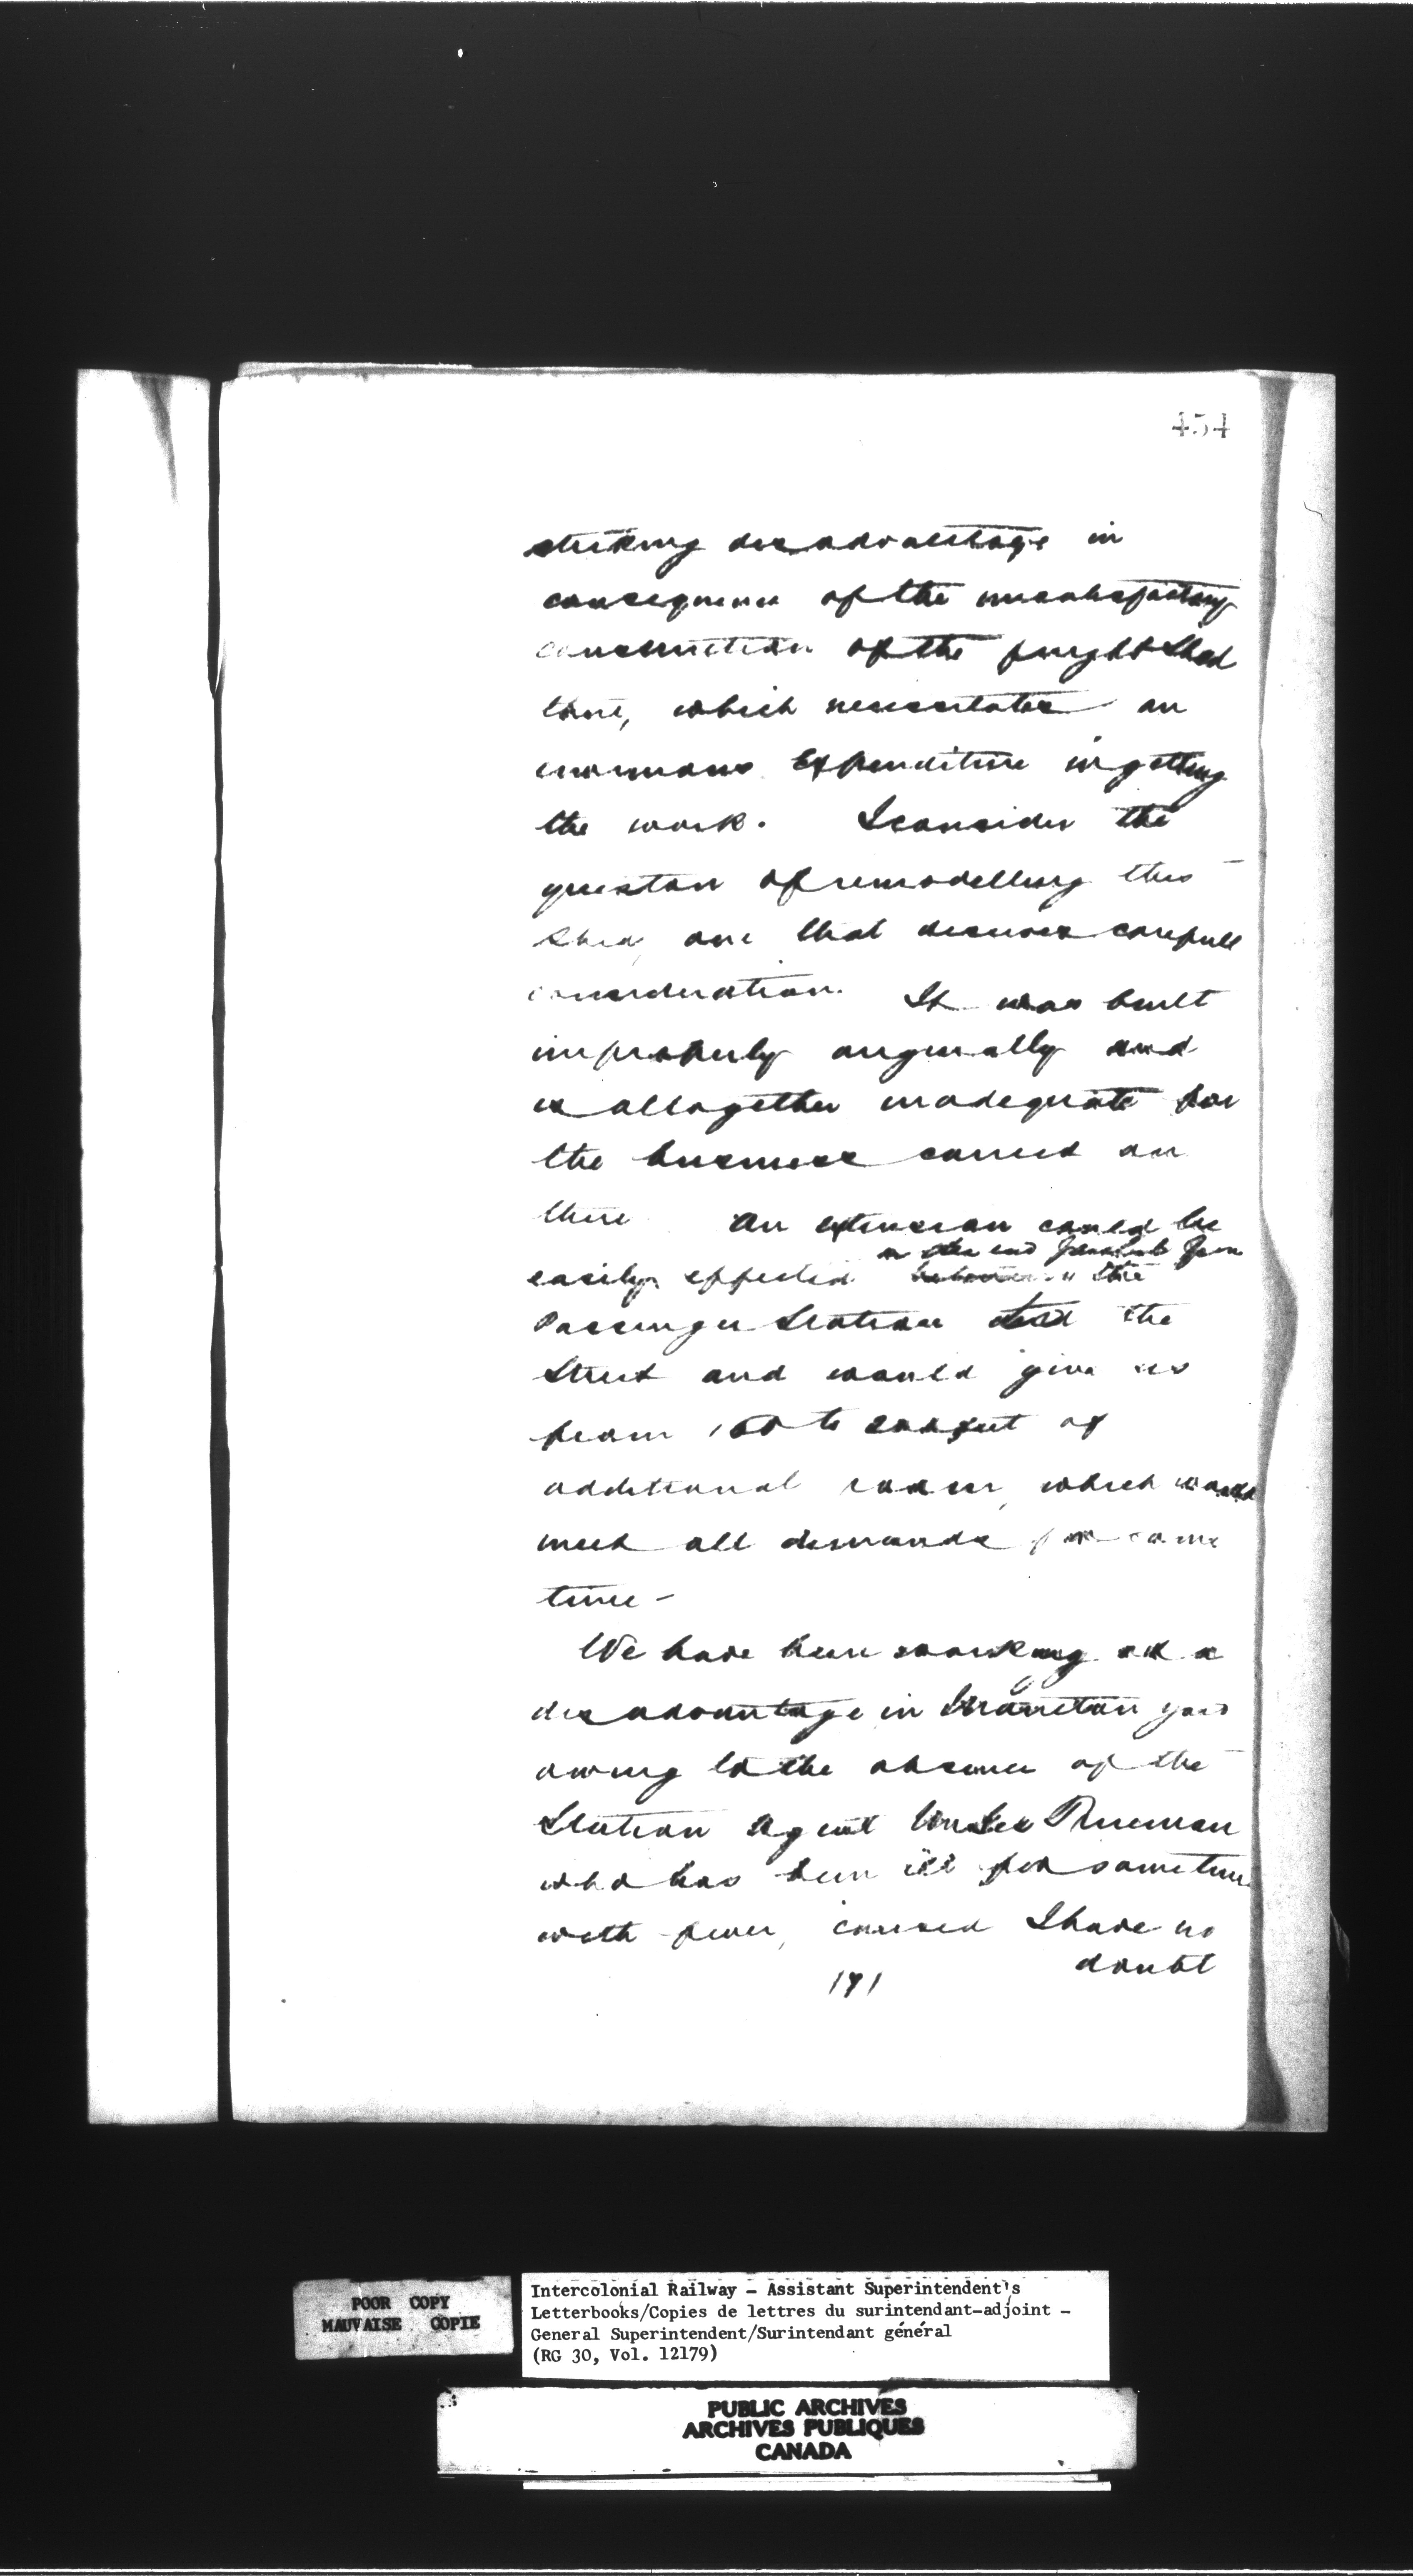 454
striking disadvantage in
consequence of the unsatisfactory
construction of the freight Shed
there, which necessitates an
enormous expenditure in getting
the work. I consider the
question of remodelling this
Shed, one that deserves carefull
consideration. It was built
improperly originally and
is altogether inadequate for
the business carried on
there An extension could be
on the end
easily effected the
Passenger Station and the
Street and would give us
from 150 to feet of
additional room, which would
meet all demands for some
time -
We have been working at a
disadvantage in Moncton yard
owing to the absence of the
Station Agent
who has been ill for some time
with fever, caused I have no
doubt
191
POOR COPY
MAUVAISE COPIE
Intercolonial Railway - Assistant Superintendent's
Letterbooks/Copies de lettres du surintendant-adjoint -
General Superintendent/Surintendant général
(RG 30, Vol. 12179)
PUBLIC ARCHIVES
ARCHIVES PUBLIQUES
CANADA